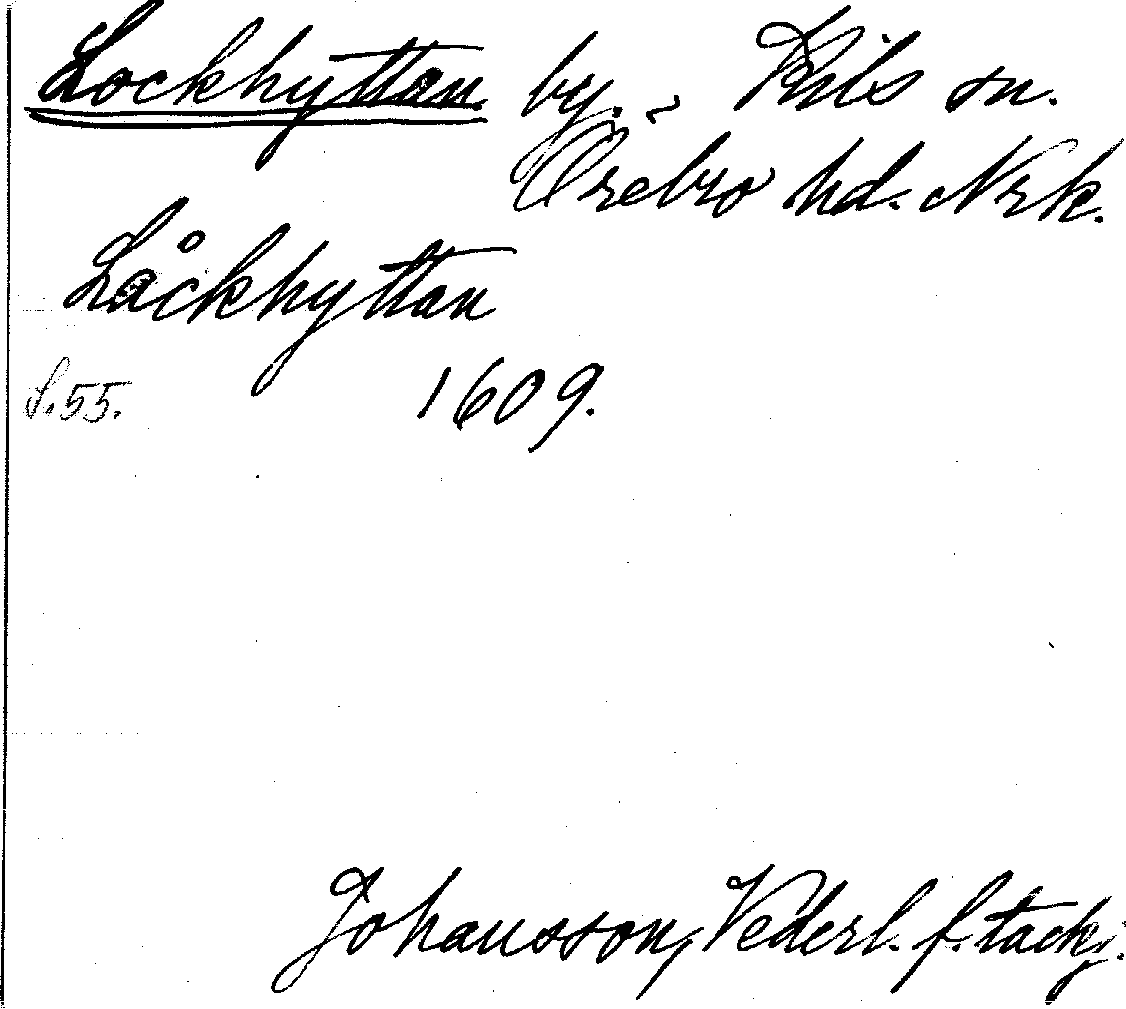 Lockhyttan by. - Kils sn.
Örebro hd. Nrk.
Låckhyttan
S. 55. 1609.
Johansson, Vederl. f. tackj.